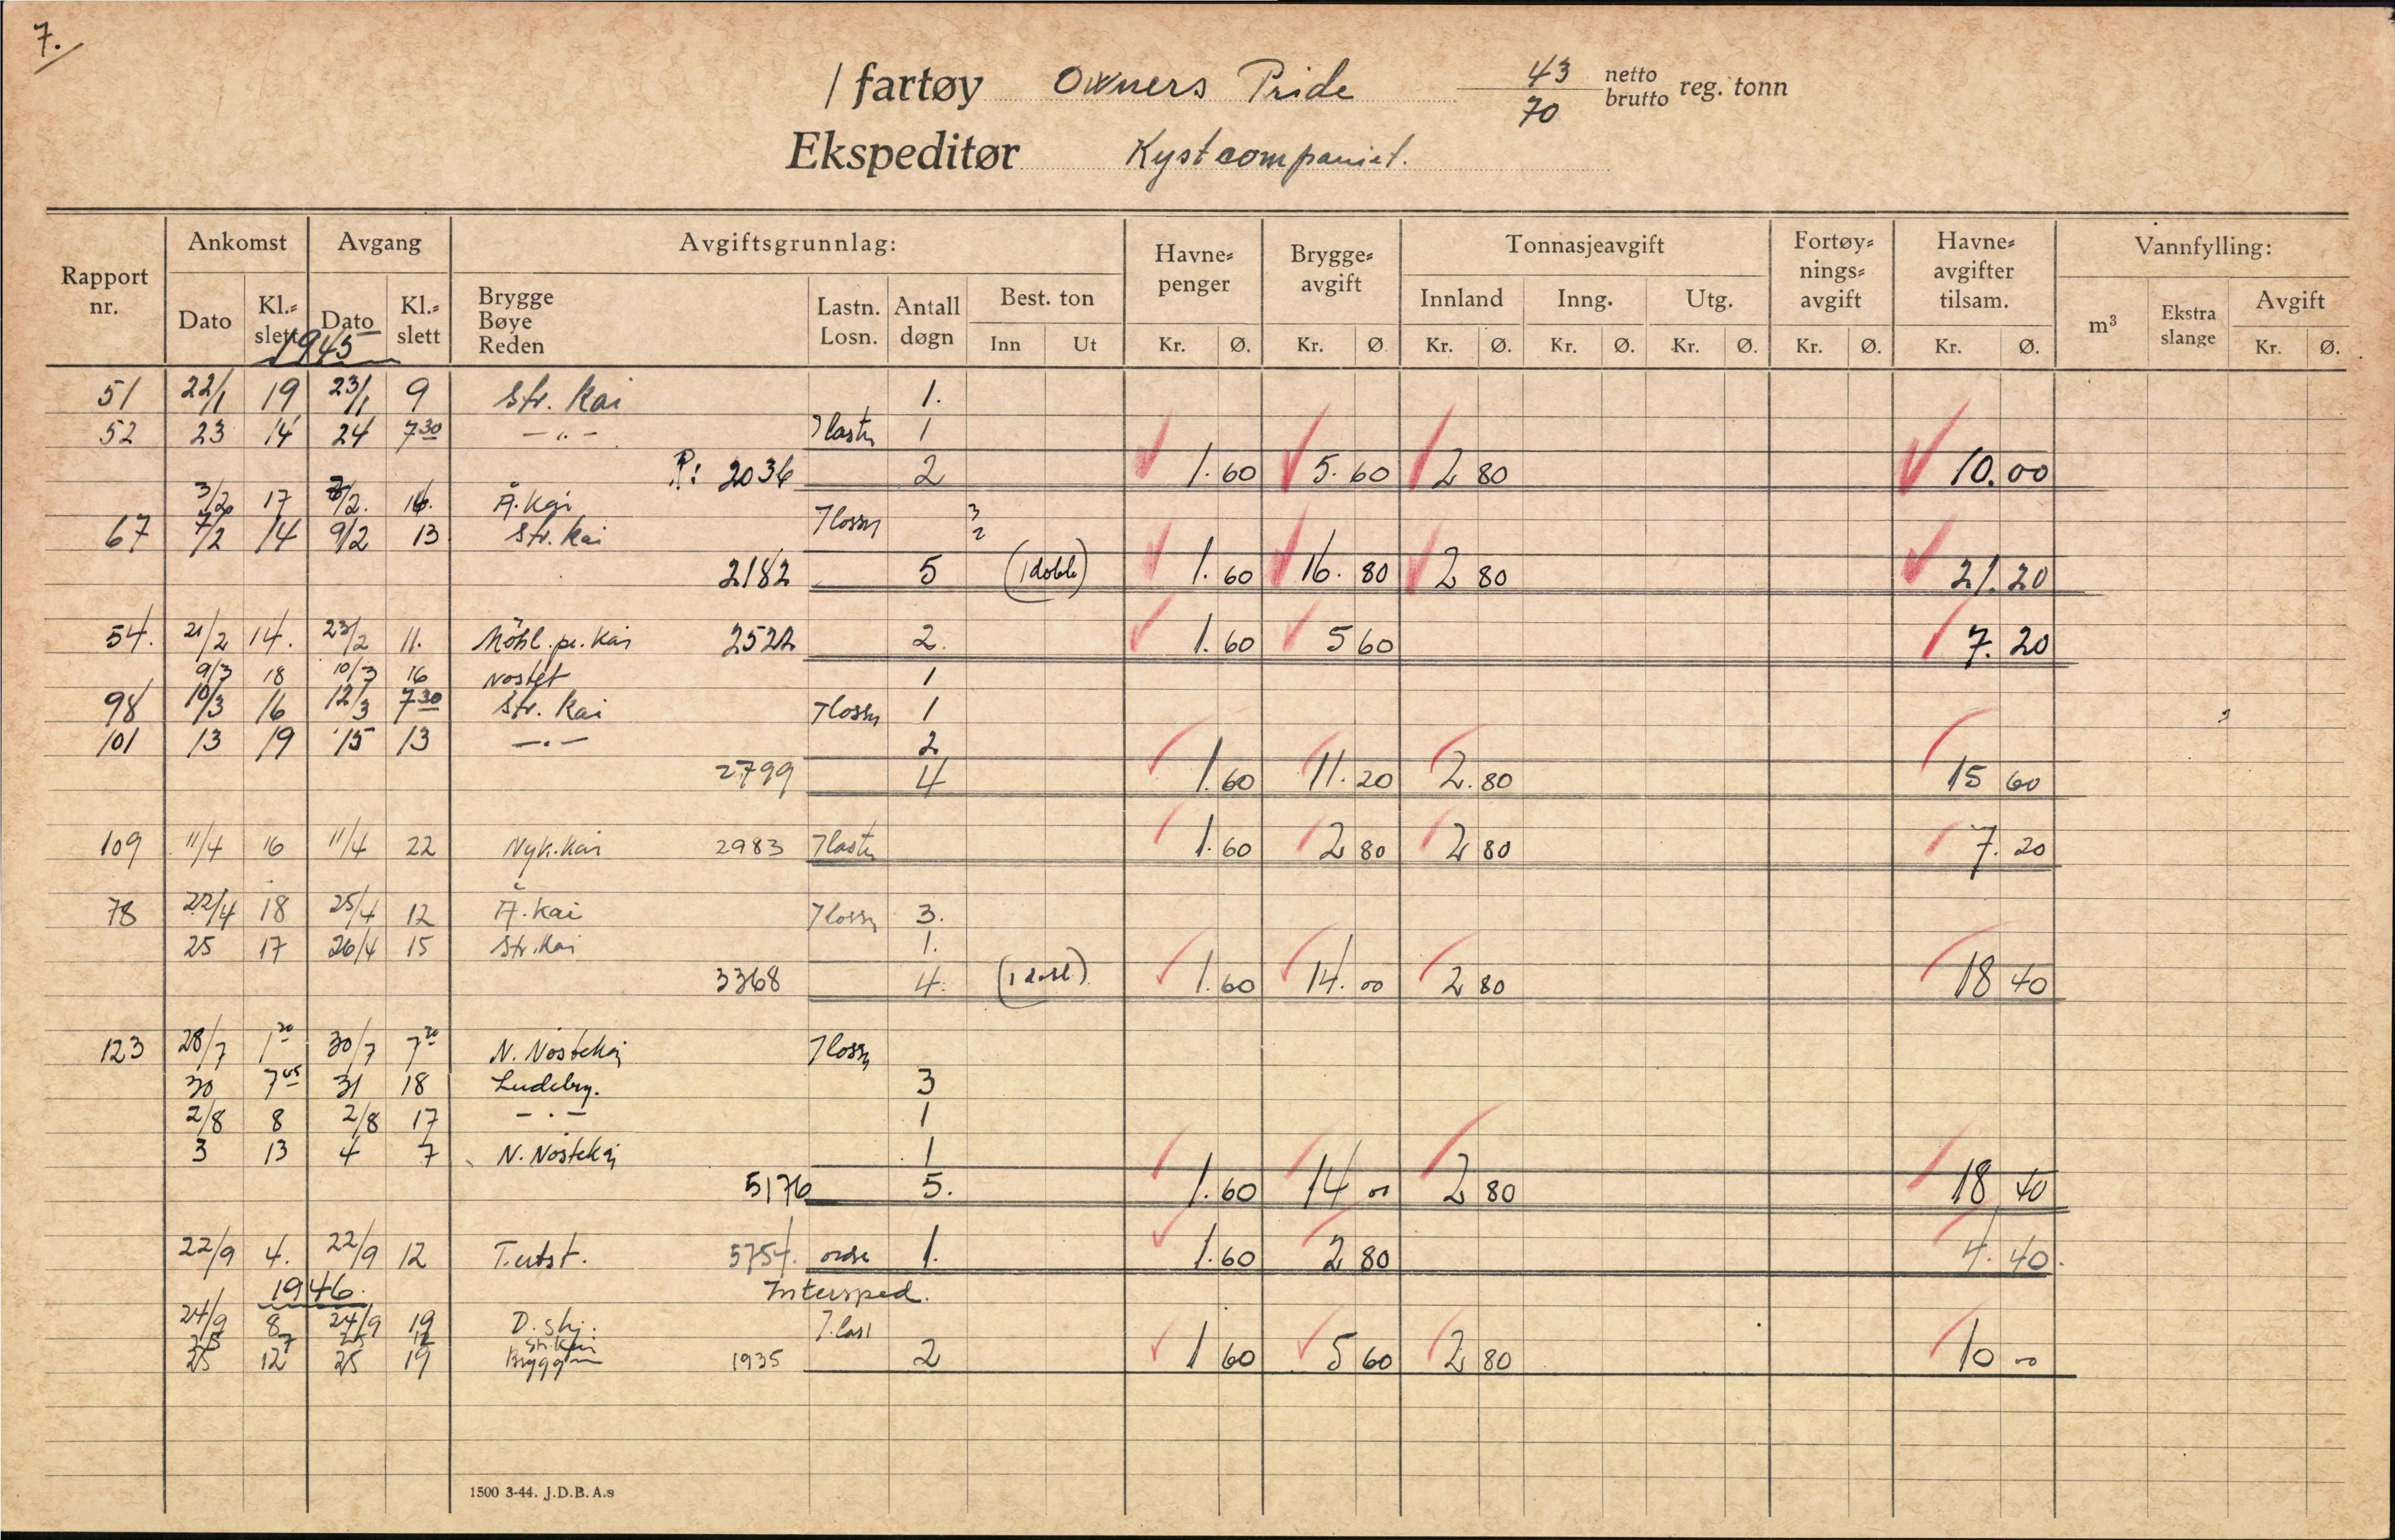 7.
/ fartøy Owners Pride 43 netto
70 brutto reg. tonn
Ekspeditør Kystcompaniet.
Rapport nr. Ankomst Avgang Avgiftsgrunnlag: Havne-penger Brygge-avgift Tonnasjeavgift Fortøy-nings-avgift Havne-avgifter tilsam. Vannfylling:
Dato Kl.-slett Dato Kl.-slett Brygge Bøye Reden Lastn. Losn. Antall døgn Best. ton Innland Inng. Utg. m³ Ekstra slange Avgift
Inn Ut Kr. Ø. Kr. Ø. Kr. Ø. Kr. Ø. Kr. Ø. Kr. Ø. Kr. Ø. Kr. Ø.
1945
51 22/1 19 23/1 9 Str. Kai 1.
52 23 14 24 7 30 — " — I lastn 1
P: 2036 2 1.60 5.60 2 80 10.00
3/2 17 /2. 16. Å. Kai 3
67 7/2 14 9/2 13 Str. Kai I lossn 2
2182 5 (1 dobb) 1.60 16.80 2 80 21.20
54. 21/2 14. 23/2 11. Möhl. pr. Kai 2522 2. 1.60 5 60 7.20
9/3 18 10/3 16 Nostet 1
98 10/3 16 12/3 7 30 Str. Kai I lossn 1
101 13 19 15 13 — " — 2
2799 4 1.60 11.20 2.80 15 60
109 11/4 16 11/4 22 Nyk. kai 2983 I lastn 1.60 2 80 2 80 7.20
78 22/4 18 25/4 12 Å. Kai I lossn 3.
25 17 26/4 15 Str. Kai 1.
3368 4. (1 dobl) 1.60 14.00 2 80 18 40
123 28/7 1 30 30/7 7 30 N. Nöstekai I lossn
30 7 45 31 18 Ludebry. 3
2/8 8 2/8 17 — " — 1
3 13 4 7 N. Nöstekai 1
5176 5. 1.60 14 00 2 80 18 40
22/9 4. 22/9 12 T. utst. 5754. 1. 1.60 2 80 4.40.
1946. Intersped.
24/9 8 24/9 19 D. skj. I. last
25 7 25 12 Str. Kai
25 12 25 19 Bryggen 1935 2 1 60 5 60 2 80 10 00
1500 3-44. J.D.B. A.s